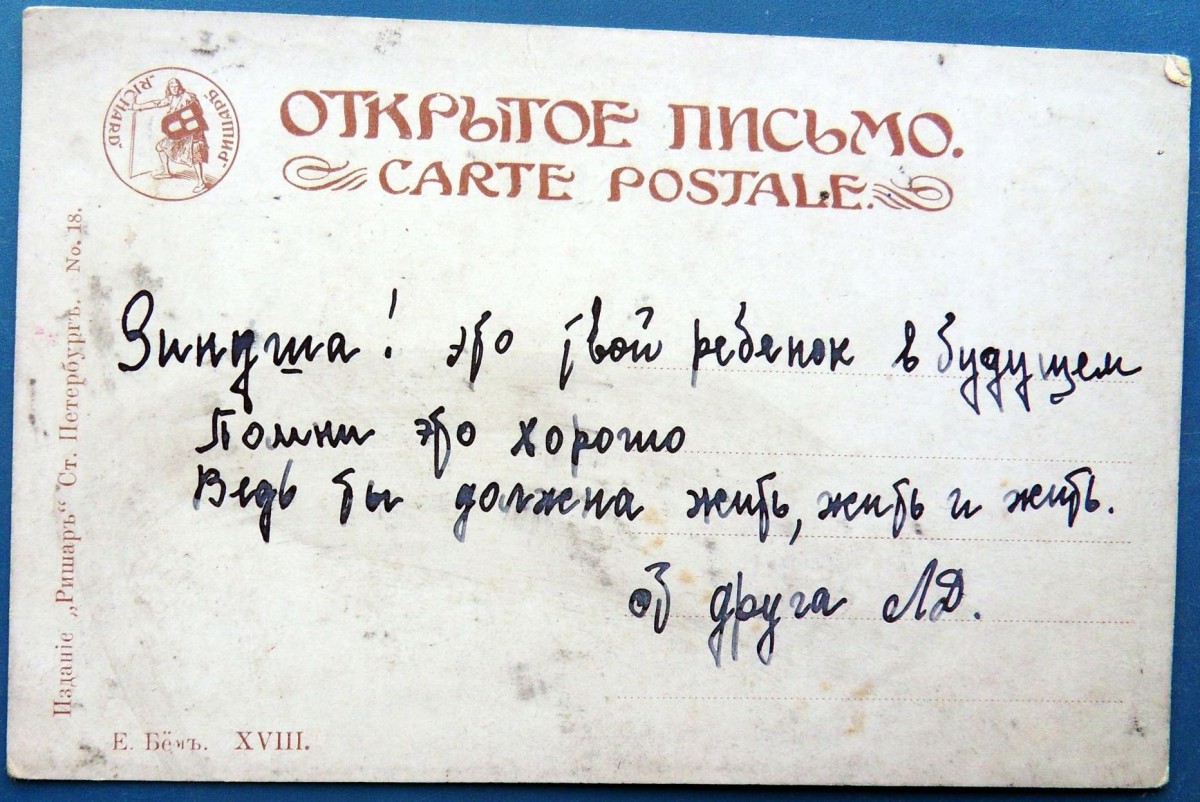 „RICHARD“ „РИШАРЪ“
ОТКРЫТОЕ ПИСЬМО.
CARTE POSTALE.
Зинуша! это твой ребенок в будущем
Помни это хорошо
Ведь ты должна жить, жить и жить.
от друга ЛД.
Изданіе „Ришаръ“ Ст. Петербургъ. No. 18.
Е. Бёмъ. XVIII.